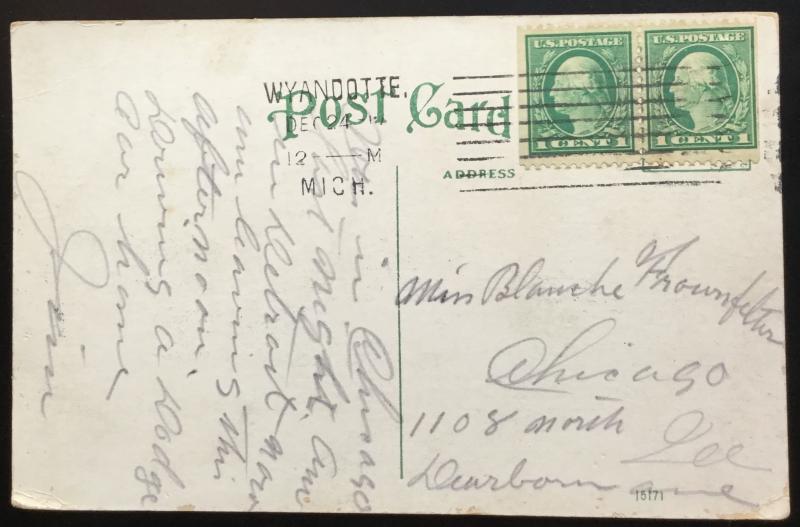 WYANDOTTE,
DEC 24
12 — M
MICH.
Post Card
ADDRESS
U.S. POSTAGE
1 CENT 1
U.S. POSTAGE
1 CENT 1
Was in Chicago
last night, am
in Detroit now
am leaving this
afternoon,
Driving a Dodge
car home
Jim
Miss Blanche Frownfelter
Chicago
1108 north Ill
Dearborn ave
15171